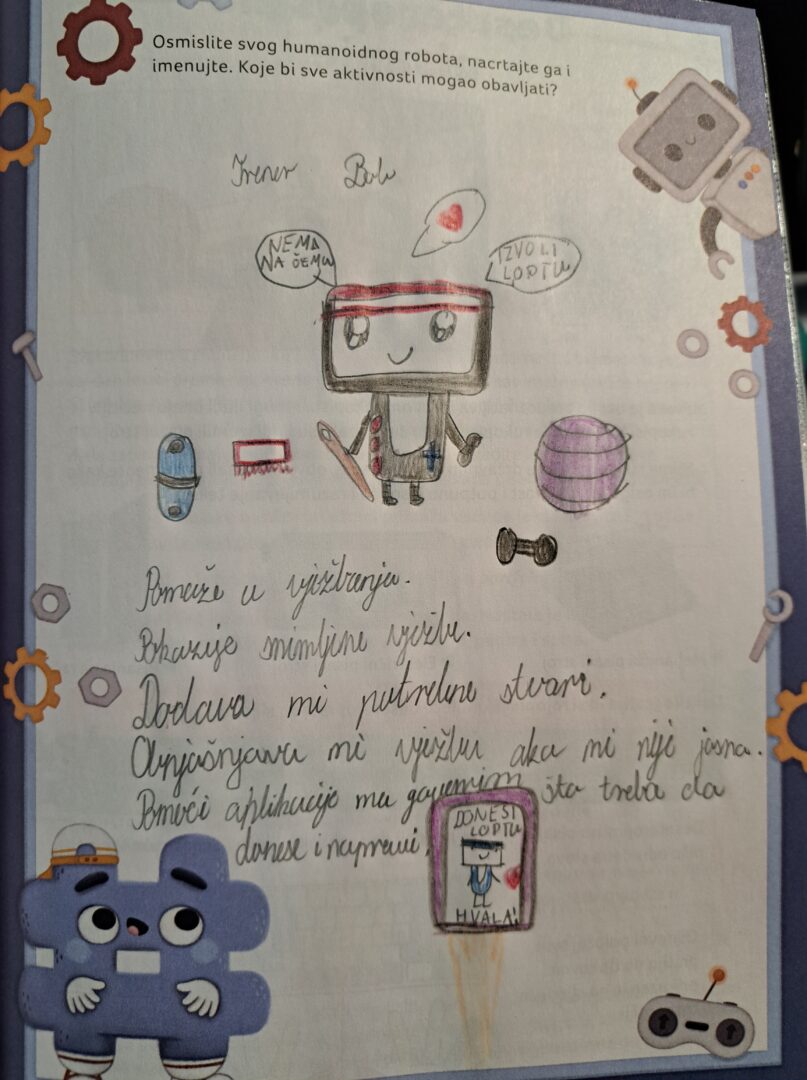 Osmislite svog humanoidnog robota, nacrtajte ga i
imenujte. Koje bi sve aktivnosti mogao obavljati?
Trener Bob
NEMA
NA ČEMU
IZVOLI
LOPTU
Pomaže u vježbanja.
Pokazije snimljine vježbe.
Dodava mi potrebne stvari.
Objašnjava mi vježbu aka mi nije jasna.
Pomoći aplikacije mu govorim šta treba da
donese i napravi.
DONESI
LOPTU
HVALA!